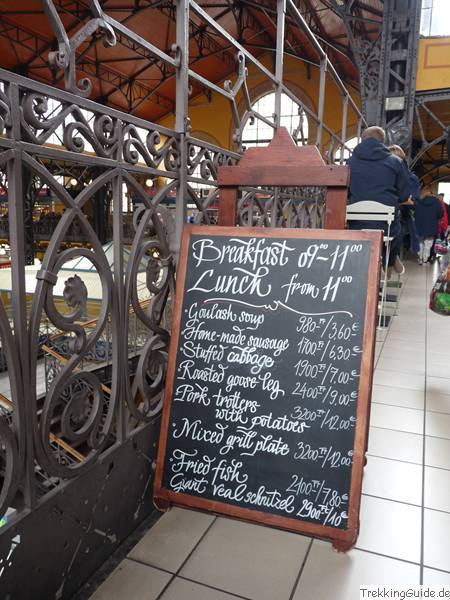 Breakfast 09⁰⁰-11⁰⁰
Lunch from 11⁰⁰
Goulash soup 980.-Ft/3,60.-€
Home-made sausage 1700.-Ft/6,30.-€
Stuffed cabbage 1900.-Ft/7,00.-€
Roasted goose-leg 2400.-Ft/9,00.-€
Pork trotters
with potatoes 3200.-Ft/12,00.-€
Mixed grill plate 3200.-Ft/12,00.-€
Fried fish 2100.-Ft/7,80.-€
Giant veal schnitzel 2900.-Ft/10.-€
TrekkingGuide.de